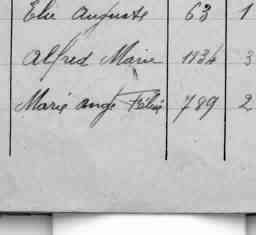 Elie Auguste 63 1
Alfred Marie 1134 3
Marie ange Félicie 789 2